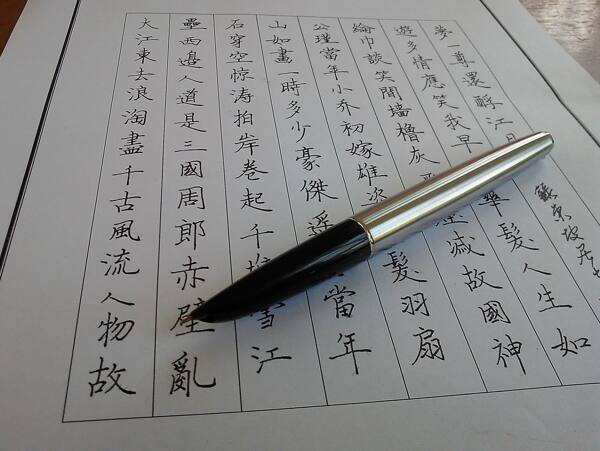 大江東去浪淘盡千古風流人物故
壘西邊人道是三國周郎赤壁亂
石穿空惊涛拍岸卷起千堆雪江
山如畫一時多少豪傑遥當年
公瑾當年小乔初嫁雄姿髮羽扇
綸巾談笑間墙櫓灰滅故國神
遊多情應笑我早華髮人生如
夢一尊還酹江月
蘇東坡